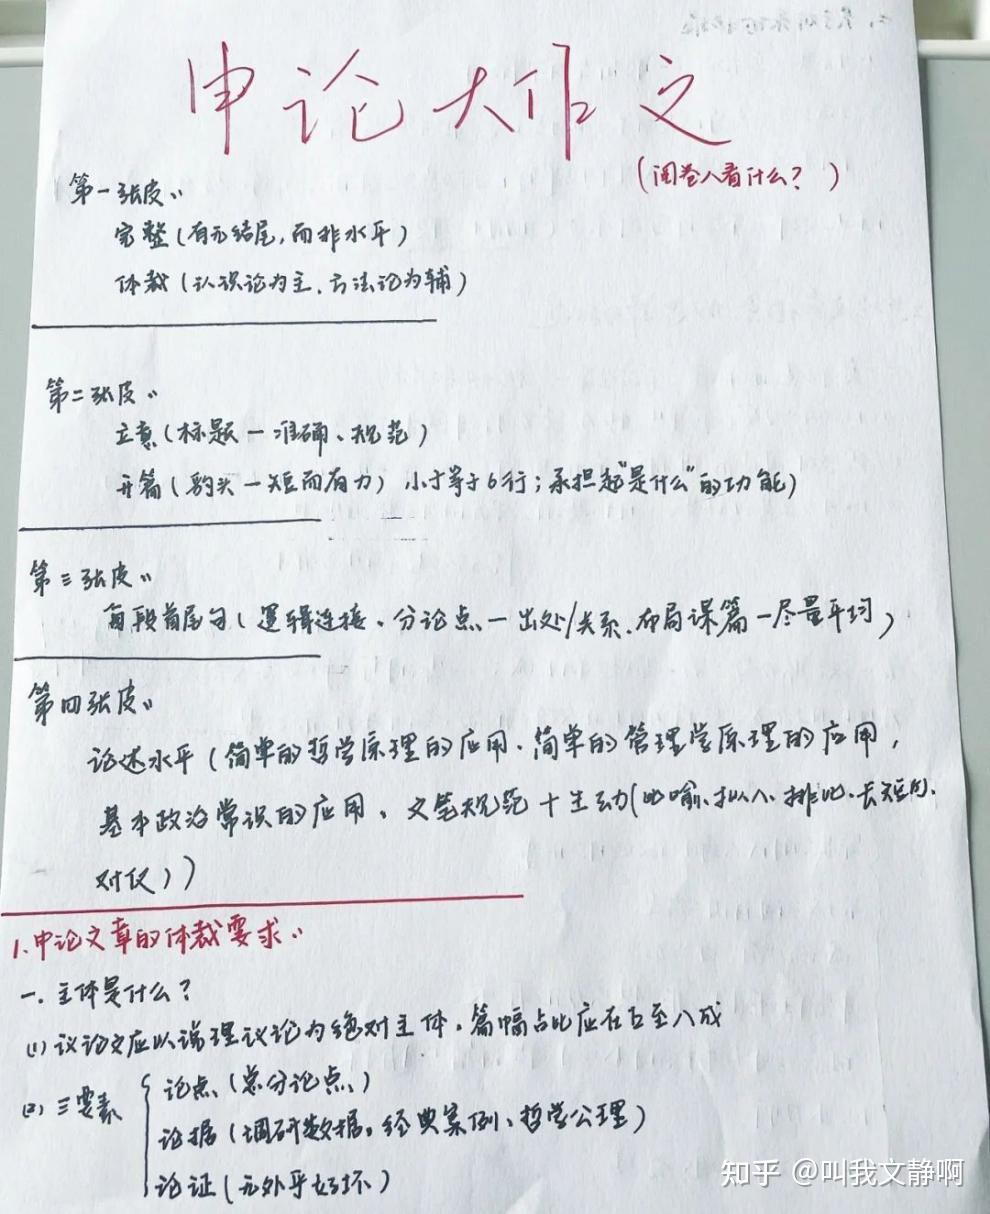 申论大作文
(阅卷人看什么?)
第一张皮:
完整(有无结尾,而非水平)
体裁(认识论为主、方法论为辅)
第二张皮:
立意(标题一准确、规范)
开篇(豹头一短而有力) 小于等于6行;承担起"是什么"的功能)
第三张皮:
每段首尾句(逻辑连接、分论点一出处/关系、布局谋篇一尽量平均)
第四张皮:
论述水平(简单的哲学原理的应用、简单的管理学原理的应用,
基本政治常识的应用、文笔规范+生动(比喻、拟人、排比、长短句、
对仗))
1.申论文章的体裁要求:
一.主体是什么?
(1)议论文应以说理议论为绝对主体,篇幅占比应在五至八成
(2)三要素
论点(总分论点)
论据(调研数据、经典案例、哲学公理)
论证(无外乎好坏)
知乎 @叫我文静啊